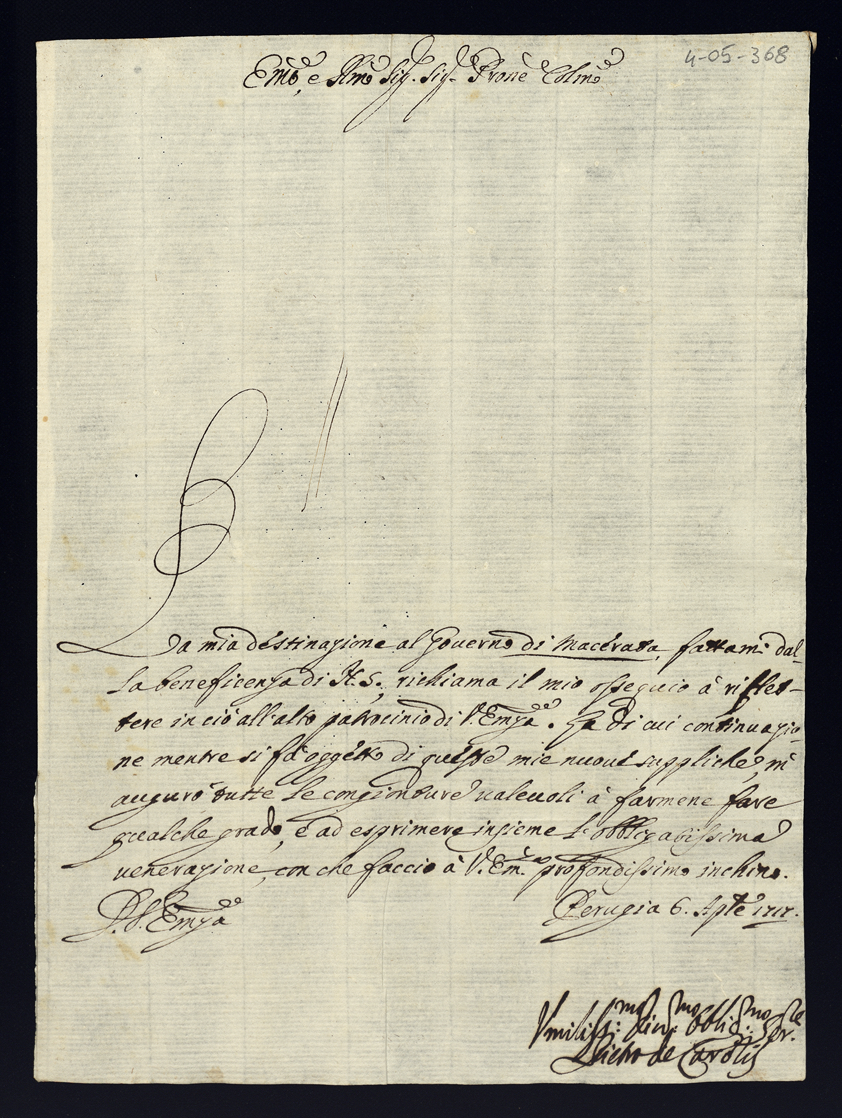 4-05-368
Em̃o, e R̃mo Sig. Sig. Prone Colmo
La mia destinazione al Governo di Macerata, fattami dal-
la beneficenza di N. S., richiama il mio ossequio à riflet-
tere in ciò all'alto patrocinio di V. Emza. La di cui continuazio-
ne mentre si fà oggetto di queste mie nuove suppliche, m'
auguro tutte le congionture valevoli à farmene fare
qualche grado, e ad esprimere insieme l'obbligatissima
venerazione, con che faccio à V. Em. profondissimo inchino.
D. V. Emza
Perugia 6. Aple 1717.
Vmiliss:mo Div:mo Obblig:mo Ser.re
de Carolis